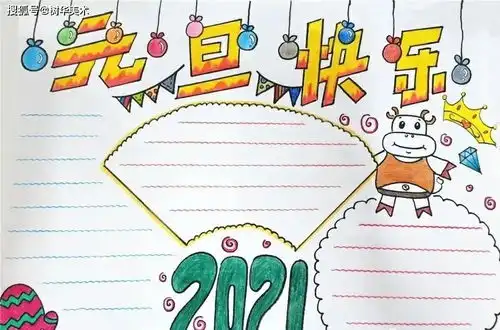 搜狐号@树华美术
元旦快乐
2021